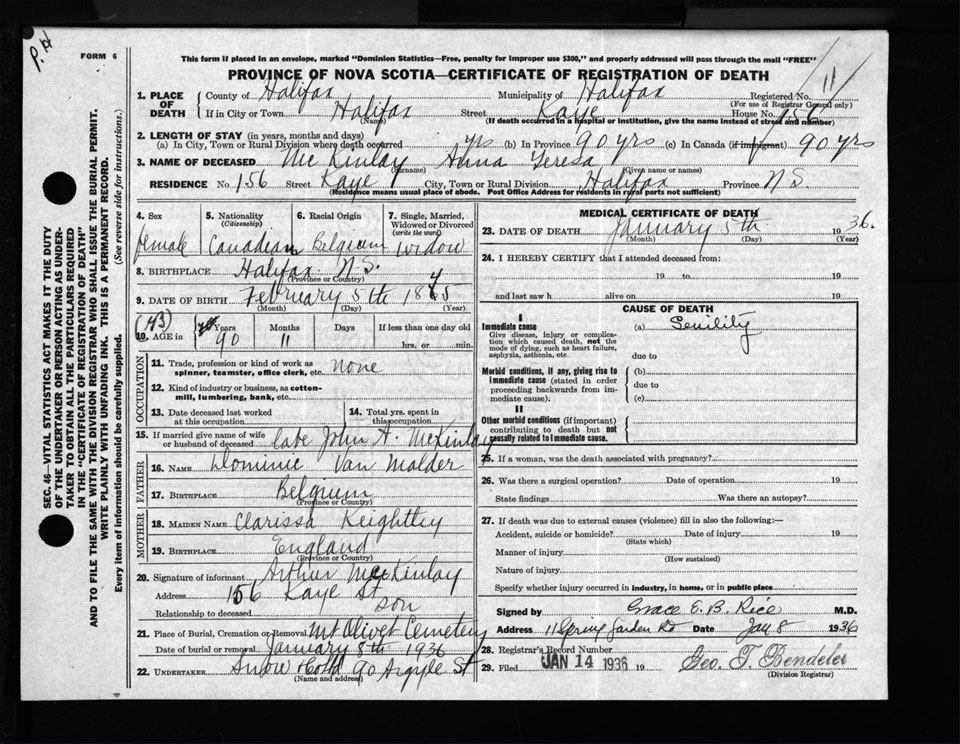 P.H
FORM 6
This form if placed in an envelope, marked "Dominion Statistics—Free, penalty for improper use $300," and properly addressed will pass through the mail "FREE"
PROVINCE OF NOVA SCOTIA—CERTIFICATE OF REGISTRATION OF DEATH
11
1. PLACE OF DEATH
County of Halifax Municipality of Halifax Registered No.
(For use of Registrar General only)
If in City or Town Halifax Street Kaye House No. 156
(Name) (If death occurred in a hospital or institution, give the name instead of street and number)
2. LENGTH OF STAY (in years, months and days)
(a) In City, Town or Rural Division where death occurred yrs (b) In Province 90 yrs (c) In Canada (if immigrant) 90 yrs
3. NAME OF DECEASED McKinlay Anna Teresa
(Surname) (Given name or names)
RESIDENCE No. 156 Street Kaye City, Town or Rural Division Halifax Province N.S.
(Residence means usual place of abode. Post Office Address for residents in rural parts not sufficient)
4. Sex
female
5. Nationality
(Citizenship)
Canadian
6. Racial Origin
Belgium
7. Single, Married, Widowed or Divorced
(write the word)
Widow
8. BIRTHPLACE Halifax N.S.
(Province or Country)
9. DATE OF BIRTH February 5th 1845
(Month) (Day) (Year)
(43)
10. AGE in Years Months Days If less than one day old
90 11 hrs. or min.
OCCUPATION
11. Trade, profession or kind of work as spinner, teamster, office clerk, etc. none
12. Kind of industry or business, as cotton-mill, lumbering, bank, etc.
13. Date deceased last worked at this occupation
14. Total yrs. spent in this occupation
15. If married give name of wife or husband of deceased late John A. McKinlay
FATHER
16. NAME Dominic Van Malder
17. BIRTHPLACE Belgium
(Province or Country)
MOTHER
18. MAIDEN NAME Clarissa Keightley
19. BIRTHPLACE England
(Province or Country)
20. Signature of informant Arthur McKinlay
Address 156 Kaye St
Relationship to deceased son
21. Place of Burial, Cremation or Removal Mt Olivet Cemetery
Date of burial or removal January 8th 1936
22. UNDERTAKER Snow & Co Ltd 90 Argyle St
(Name and address)
MEDICAL CERTIFICATE OF DEATH
23. DATE OF DEATH January 5th 1936.
(Month) (Day) (Year)
24. I HEREBY CERTIFY that I attended deceased from:
19 to 19
and last saw h alive on 19
CAUSE OF DEATH
I
Immediate cause
Give disease, injury or complication which caused death, not the mode of dying, such as heart failure, asphyxia, asthenia, etc.
(a) Senility
due to
Morbid conditions, if any, giving rise to Immediate cause (stated in order proceeding backwards from immediate cause)
(b)
due to
(c)
II
Other morbid conditions (if important) contributing to death but not causally related to Immediate cause.
25. If a woman, was the death associated with pregnancy?
26. Was there a surgical operation? Date of operation 19
State findings Was there an autopsy?
27. If death was due to external causes (violence) fill in also the following:—
Accident, suicide or homicide? Date of injury 19
(State which)
Manner of injury
(How sustained)
Nature of injury
Specify whether injury occurred in industry, in home, or in public place
Signed by Grace E. B. Rice M.D.
Address 11 Spring Garden Rd Date Jan 8 1936
28. Registrar's Record Number
29. Filed JAN 14 1936 19 Geo. T. Bendeler
(Division Registrar)
SEC. 46—VITAL STATISTICS ACT MAKES IT THE DUTY OF THE UNDERTAKER OR PERSON ACTING AS UNDERTAKER TO OBTAIN ALL THE PARTICULARS REQUIRED IN THE "CERTIFICATE OF REGISTRATION OF DEATH" AND TO FILE THE SAME WITH THE DIVISION REGISTRAR WHO SHALL ISSUE THE BURIAL PERMIT.
WRITE PLAINLY WITH UNFADING INK. THIS IS A PERMANENT RECORD.
Every item of information should be carefully supplied. (See reverse side for instructions.)